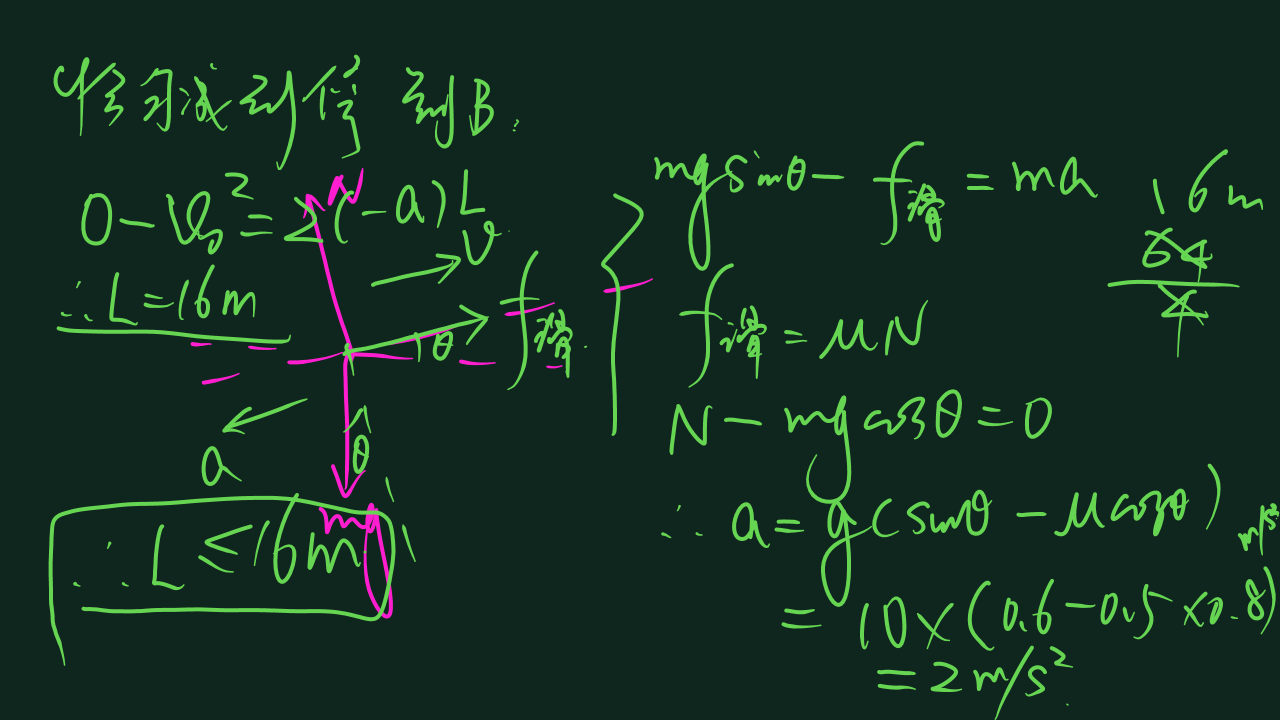 恰好减到停 到B.
0-v₀²=2(-a)L
∴L=16m
N
v
f滑
θ
a
θ
mg
∴L≤16m
mgsinθ-f滑=ma
f滑=μN
N-mgcosθ=0
∴a=g(sinθ-μcosθ)
=10×(0.6-0.5×0.8) m/s²
=2m/s².
16m
64
4